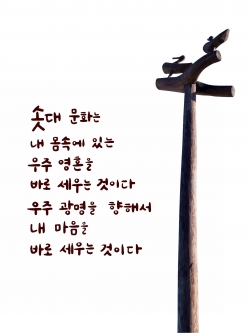 솟대 문화는
내 몸속에 있는
우주 영혼을
바로 세우는 것이다
우주 광명을 향해서
내 마음을
바로 세우는 것이다